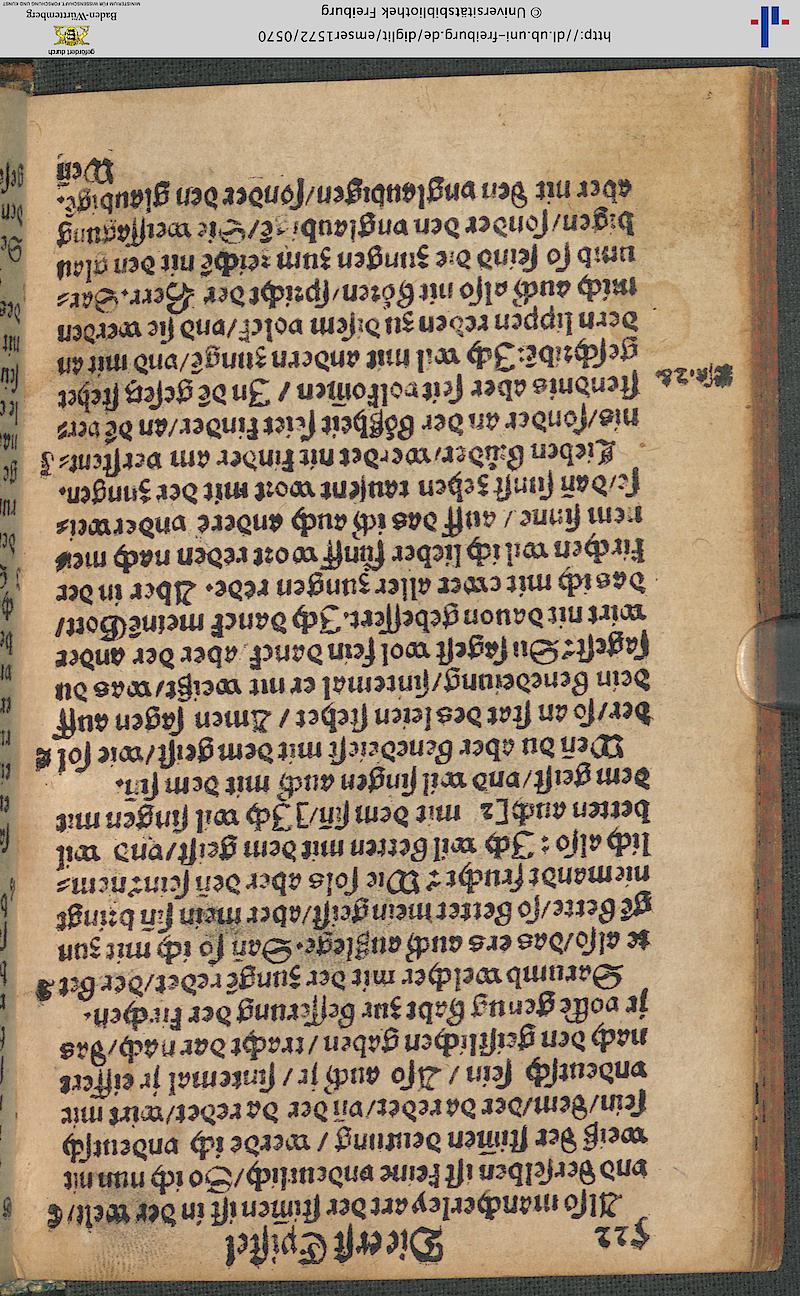 522 Die erst Epistel
Also mancherley art der stimmen ist in der welt/
vnd derselben ist keine vndeutlich/So ich nun nit
weiß der stimmen deutung / werde ich vndeutsch
sein/dem/der da redet/vñ der da redet/wirt mir
vndeutsch sein / Also auch jr / sintemal jr eifferet
nach den geistlichen gaben/trachtdar nach/das
jr volle genug habt zur besserung der kirchen.
Darumb welcher mit der zunge redet/der bet
te also/das ers auch außlege. Dan so ich mit zun
gē bette/so bettet mein geist/aber mein sin bringt
niemandt frucht: Wie sols aber den sein: nem-
lich also: Ich wil betten mit dem geist/vnd wil
betten auch[: mit dem sin/]Ich wil singen mit
dem geist/vnd wil singen auch mit dem sin.
Wen du aber benedeiest mit dem geist/wie sol
der/so an stat des leien stehet / Amen sagen auff
dein benedeiung/sintemal er nit weißt/was du
sagest: Du sagest wol fein danck aber der ander
wirt nit dauon gebessert.Ich danck meinē Gott/
das ich mit ewer aller zungen rede. Aber in der
kirchen wil ich lieber fünff wort reden nach mei
nem sinne / auff das ich auch andere vnderwei-
se/dan sunst zehen tausent wort mit der zungen.
Lieben brüder/werdet nit kinder am verstent-
nis/sonder an der boßheit seiet kinder/an dē ver-
stendnis aber seit volkomen / In dē gesetz stehet
geschribē:Ich wil mit andern zunge/vnd mit an
dern lippen reden zu disem volck/vnd sie werden
mich auch also nit hören/spricht der Herr. Dar-
umb so seind die zungen zum zeichē nit den glau
bigen/sonder den vnglaubigē/Die weissagung
aber nit den vnglaubigen/sonder den glaubigē.
Wen